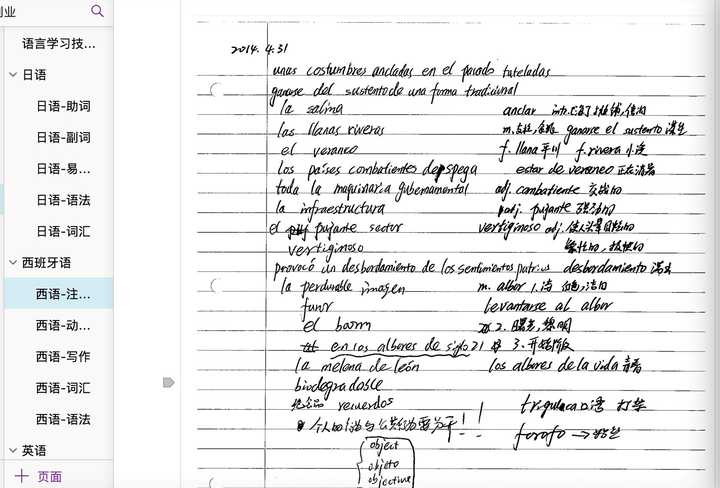 创业
语言学习技...
日语
日语-助词
日语-副词
日语-易...
日语-语法
日语-词汇
西班牙语
西语-注...
西语-动...
西语-写作
西语-词汇
西语-语法
英语
页面
2014. 4.31
unas costumbres ancladas en el pasado tuteladas
ganarse del sustento de una forma tradicional
la salina anclar intr.
las llanas riveras m. ganarse el sustento 谋生
el veraneo f. llana 平川 f. rivera 小溪
los países combatientes despega estar de veraneo 正在消暑
toda la maquinaria gubernamental adj. combatiente 交战的
la infraestructura adj. pujante 强劲的
el pujante sector vertiginoso adj. 使人头晕目眩的
vertiginoso
provocó un desbordamiento de los sentimientos patrios desbordamiento 溢出
la perdurable imagen m. albor 1.
furor levantarse al albor
el boom 2. 曙光, 黎明
en los albores de siglo 21 3. 开始阶段
la melena de león los albores de la vida 青春
biodegradable
纪念品 recuerdos
个人的 !!
forofo → 粉丝
object
objeto
objectiva